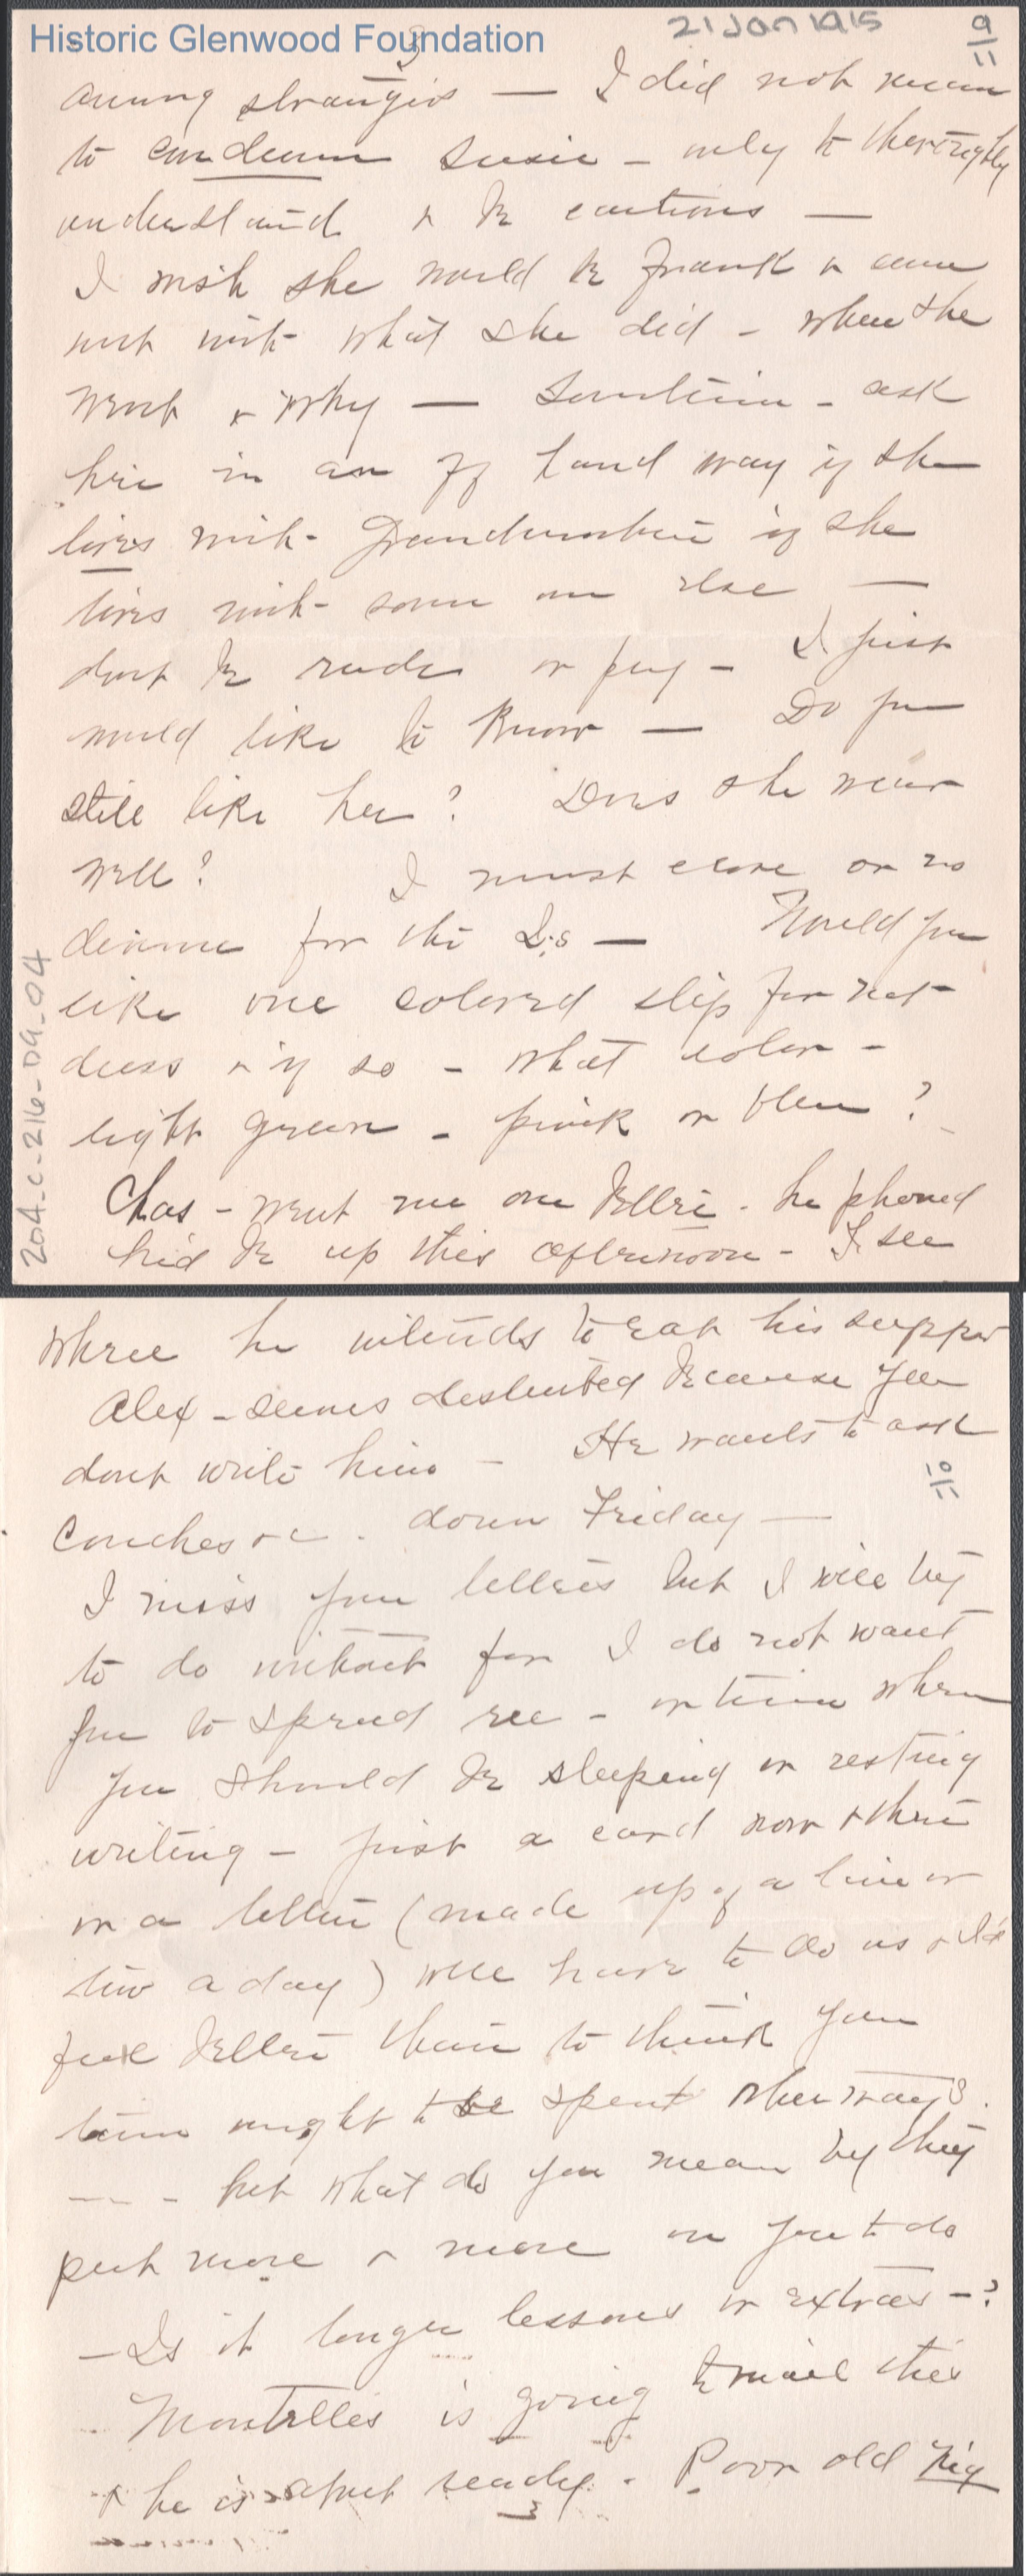 Historic Glenwood Foundation
21 Jan 1915
9/11
among strangers — I did not mean
to condemn Susie – only to thoroughly
understand & be cautious —
I wish she would be frank & come
out with what she did – when she
went & why — Sometime – ask
her in an off hand way if she
lives with Grandmother if she
lives with some one else —
dont be rude or pry – I just
would like to know — Do you
still like her? Does she wear
well? I must close or no
dinner for the D.s — Would you
like one colored slip for net
dress & if so – what color –
light green – pink or blue?
Chas – went me one better. he phoned
he'd be up this afternoon – I see
204-C-216-09-04
where he intends to eat his supper
Alex – seems because you
dont write him – He wants to ask
Conches &c. down Friday —
10/11
I miss your letters but I will try
to do without for I do not want
you to spend rec – or time when
you should be sleeping or resting
writing – just a card now & then
or a letter (made up of a line or
two a day) will have to do us & I'd
feel better than to think your
time ought to be spent other ways.
— – but what do you mean by they
put more & more on you to do
– Is it longer lessons or extras –?
is going to mail this
& he is about ready. Poor old